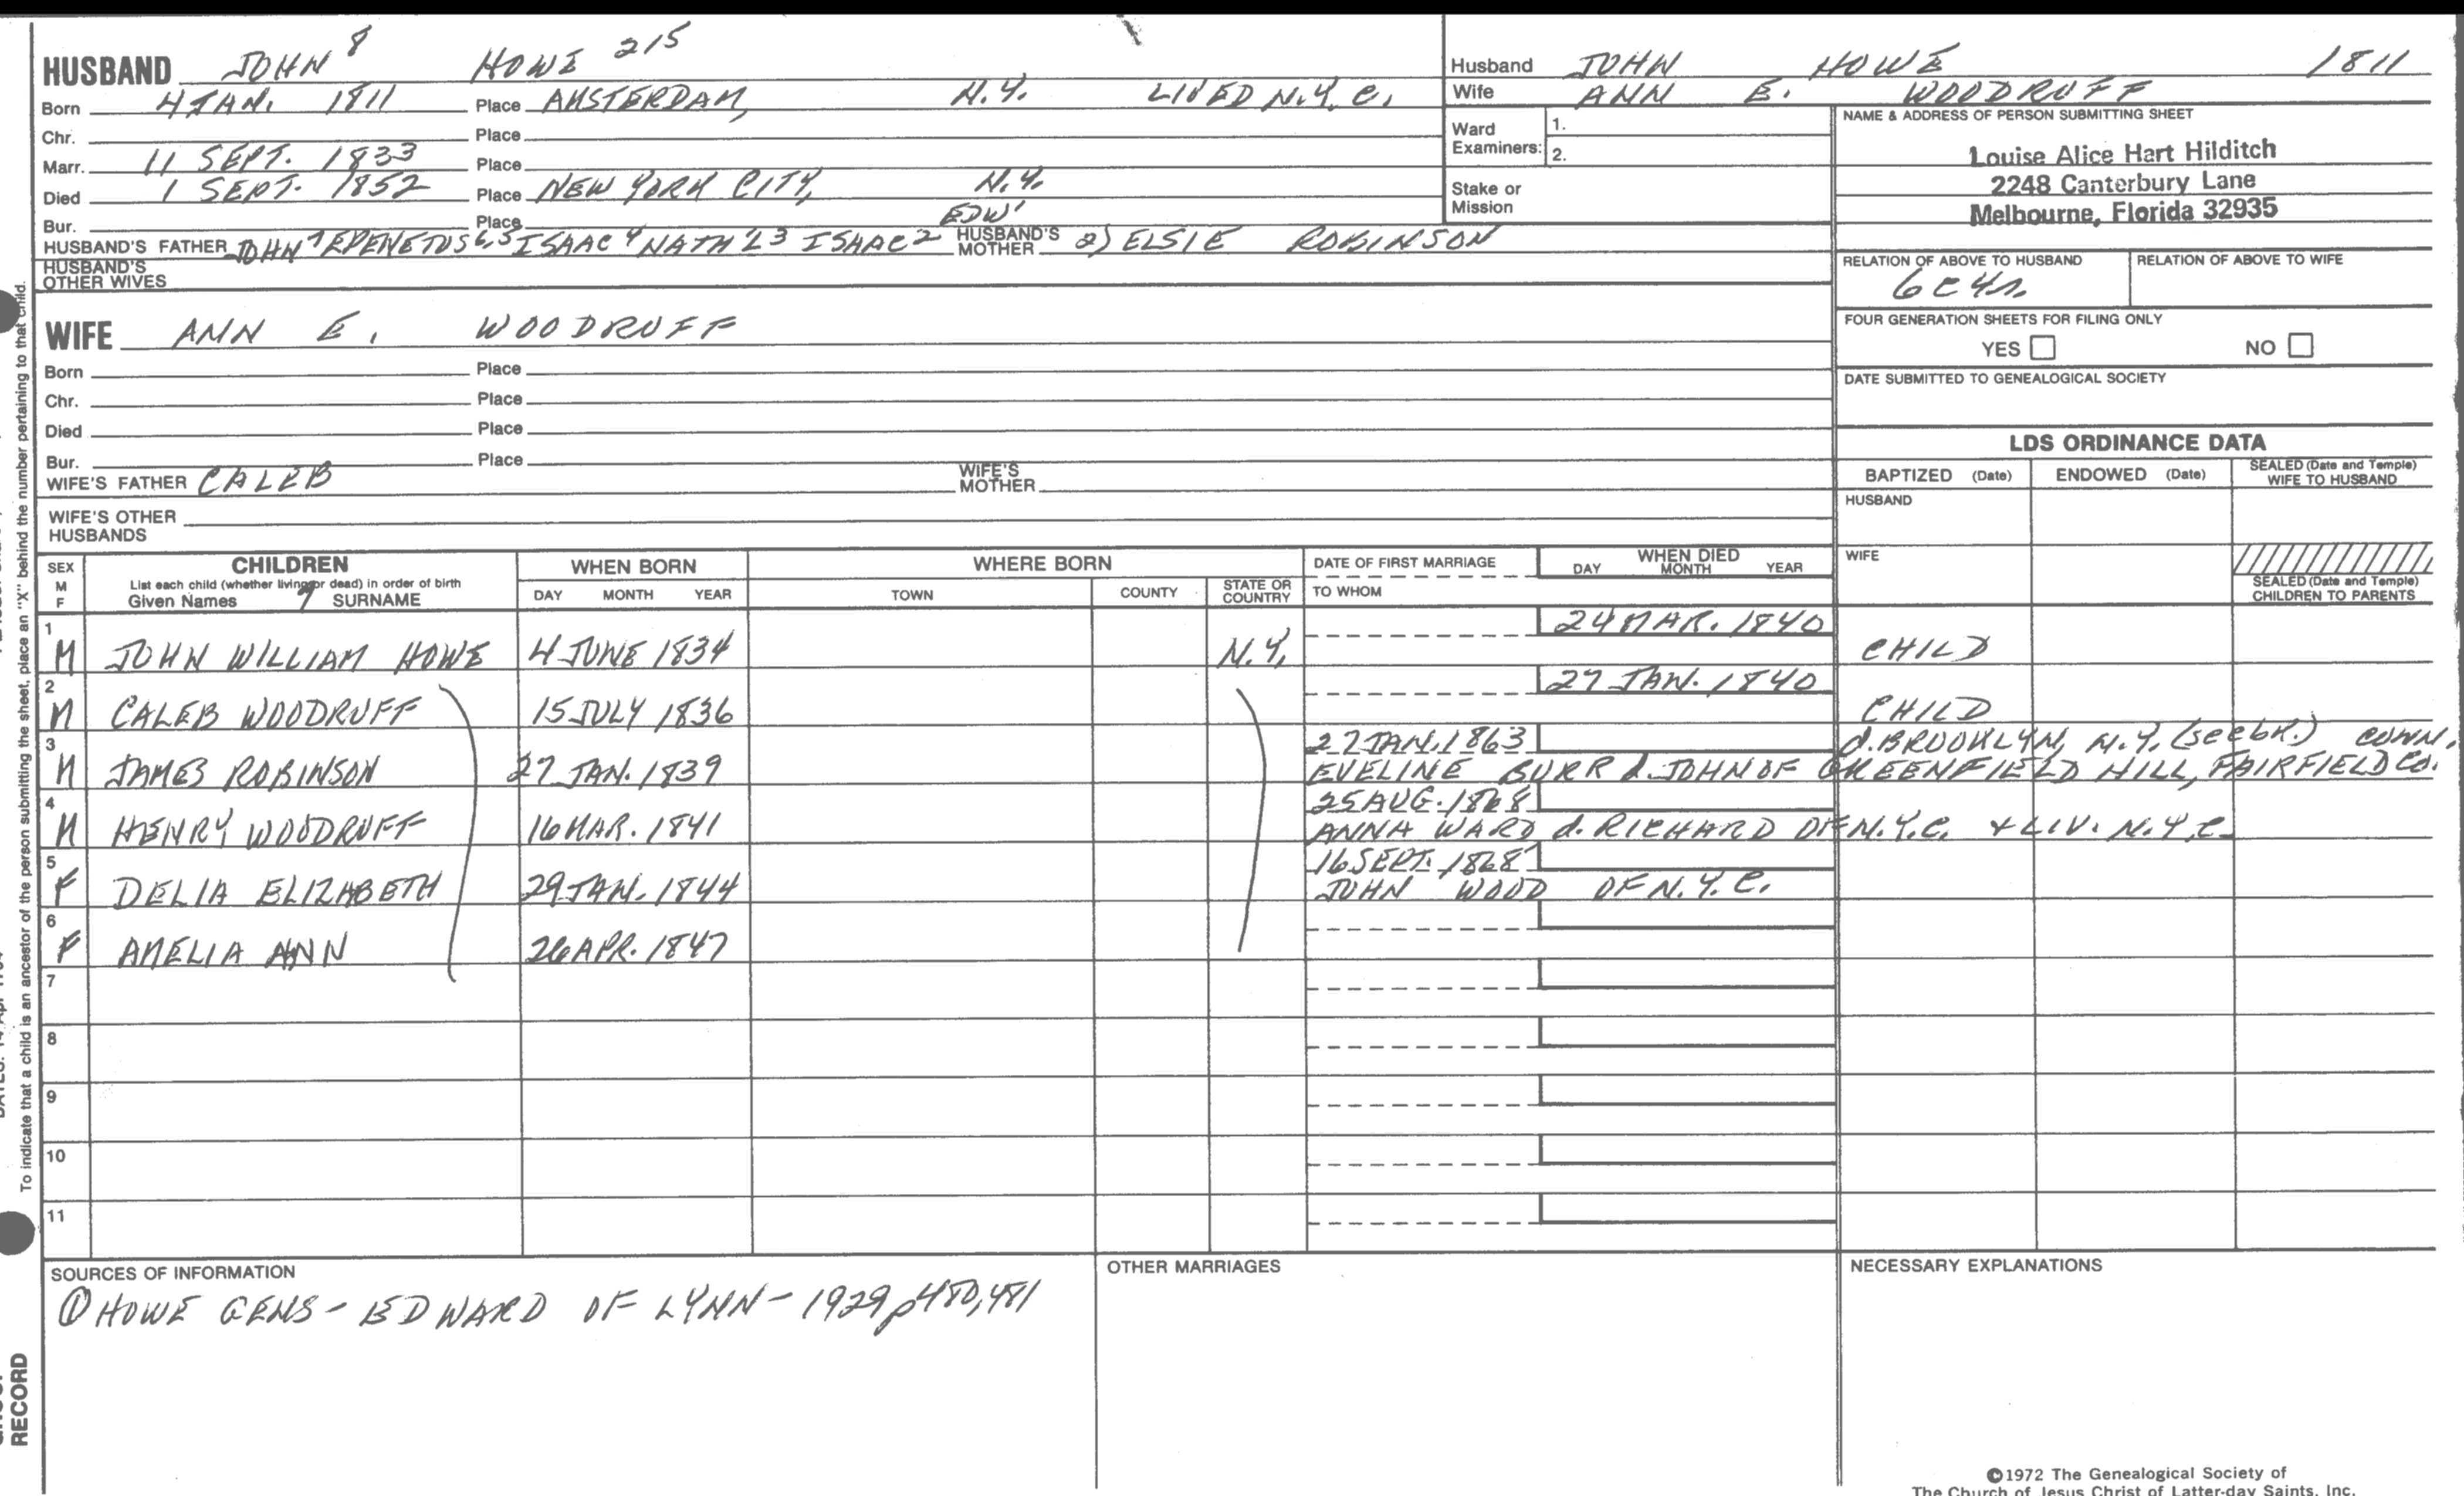 HUSBAND JOHN 8 HOWE 215
Born 4 JAN. 1811 Place AMSTERDAM, N.Y. LIVED N.Y.C.
Chr. Place
Marr. 11 SEPT. 1833 Place
Died 1 SEPT. 1852 Place NEW YORK CITY, N.Y.
Bur. Place EDW'
HUSBAND'S FATHER JOHN 7 EPENETUS 6,5 ISAAC 4 NATH'L 3 ISAAC 2 HUSBAND'S MOTHER 2) ELSIE ROBINSON
HUSBAND'S OTHER WIVES
Husband JOHN HOWE 1811
Wife ANN E. WOODRUFF
Ward Examiners: 1.
2.
Stake or Mission
NAME & ADDRESS OF PERSON SUBMITTING SHEET
Louise Alice Hart Hilditch
2248 Canterbury Lane
Melbourne, Florida 32935
RELATION OF ABOVE TO HUSBAND RELATION OF ABOVE TO WIFE
6C4R
FOUR GENERATION SHEETS FOR FILING ONLY
YES NO
DATE SUBMITTED TO GENEALOGICAL SOCIETY
WIFE ANN E. WOODRUFF
Born Place
Chr. Place
Died Place
Bur. Place
WIFE'S FATHER CALEB WIFE'S MOTHER
WIFE'S OTHER HUSBANDS
LDS ORDINANCE DATA
BAPTIZED (Date) ENDOWED (Date) SEALED (Date and Temple) WIFE TO HUSBAND
HUSBAND
WIFE
SEALED (Date and Temple) CHILDREN TO PARENTS
SEX M F
CHILDREN
List each child (whether living or dead) in order of birth
Given Names SURNAME
WHEN BORN
DAY MONTH YEAR
WHERE BORN
TOWN COUNTY STATE OR COUNTRY
DATE OF FIRST MARRIAGE
TO WHOM
WHEN DIED
DAY MONTH YEAR
1 24 MAR. 1840
M JOHN WILLIAM HOWE 4 JUNE 1834 N.Y. CHILD
2 27 JAN. 1840
M CALEB WOODRUFF 15 JULY 1836 CHILD
3 27 JAN. 1863 d. BROOKLYN, N.Y. (see bk.) CONN.
M JAMES ROBINSON 27 JAN. 1839 EVELINE BURR d. JOHN OF GREENFIELD HILL, FAIRFIELD CO.
4 25 AUG. 1868
M HENRY WOODRUFF 16 MAR. 1841 ANNA WARD d. RICHARD OF N.Y.C. + LIV. N.Y.C.
5 16 SEPT. 1868
F DELIA ELIZABETH 29 JAN. 1844 JOHN WOOD OF N.Y.C.
6
F AMELIA ANN 26 APR. 1847
7
8
9
10
11
SOURCES OF INFORMATION
① HOWE GENS - EDWARD OF LYNN - 1929 p 480, 481
OTHER MARRIAGES
NECESSARY EXPLANATIONS
©1972 The Genealogical Society of
The Church of Jesus Christ of Latter-day Saints, Inc.
To indicate that a child is an ancestor of the person submitting the sheet, place an "X" behind the number pertaining to that child.
RECORD